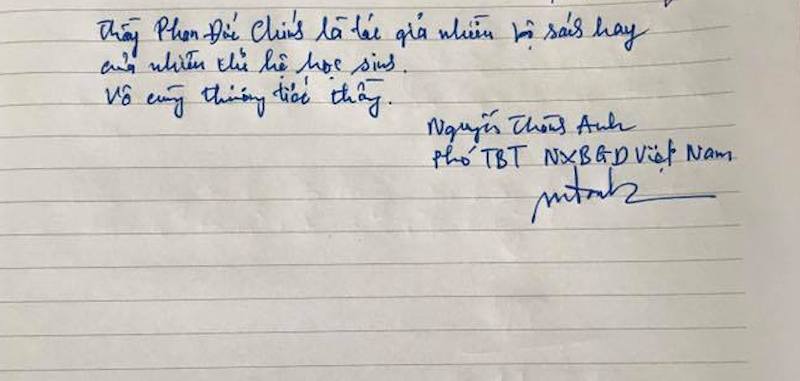 Thầy Phan Đức Chính là tác giả nhiều bộ sách hay
của nhiều thế hệ học sinh.
Vô cùng thương tiếc thầy.
Nguyễn Thành Anh
Phó TBT NXBGD Việt Nam